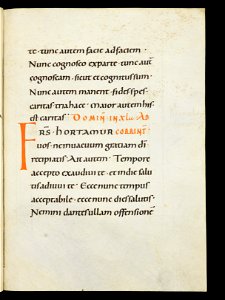 te · tunc autem facie adfaciem ·
Nunc cognosco exparte · tunc aut̄
cognoscam · sicut et cognitussum
Nunc autem manent · fides spes ·
caritas tria haec · maior autem his
est caritas · DOMIN̄ · IN XL · AD
FRS · HORTAMUR CORRINT
vos · ne in vacuum gratiam dī
recipiatis Ait autem · Tempore
accepto exaudivi te · et in die salu
tis adiuvi te · Ecce nunc tempus
acceptabile · ecce nunc dies salutis ·
Nemini dantes ullam offensionē